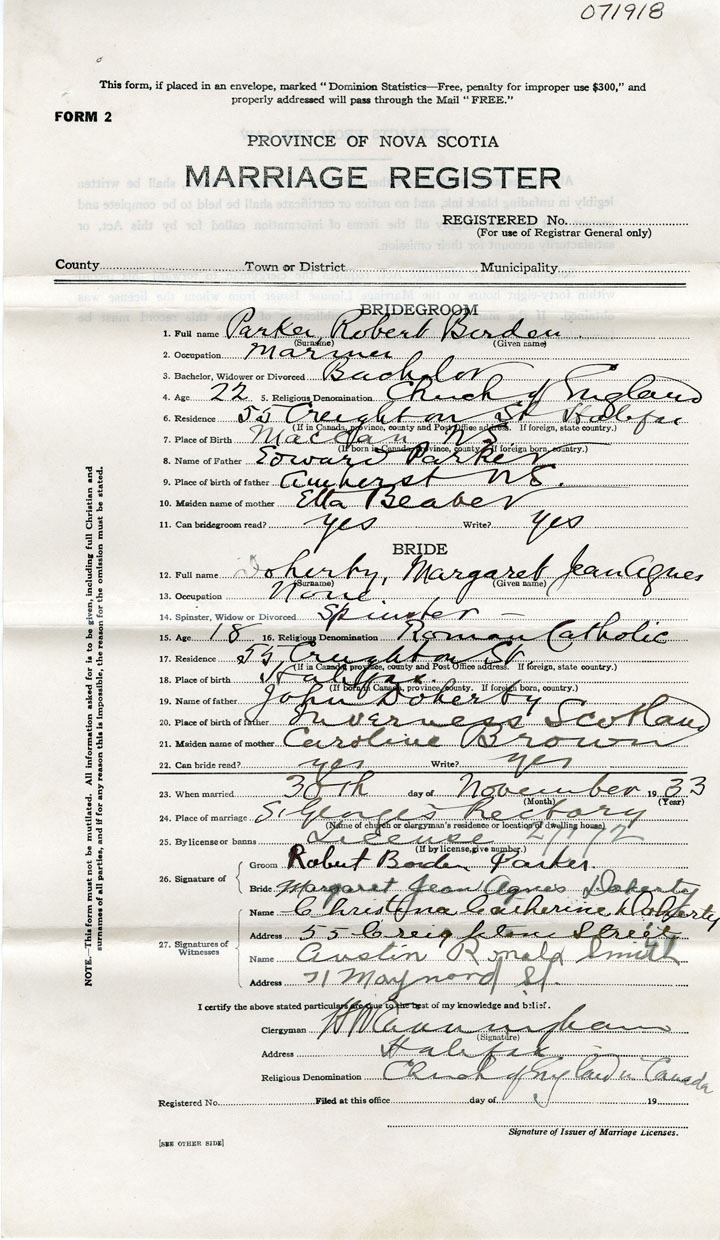 071918
This form, if placed in an envelope, marked "Dominion Statistics—Free, penalty for improper use $300," and
properly addressed will pass through the Mail "FREE."
FORM 2
PROVINCE OF NOVA SCOTIA
MARRIAGE REGISTER
REGISTERED No.
(For use of Registrar General only)
County Town or District Municipality
BRIDEGROOM
1. Full name Parker, Robert Borden
(Surname) (Given name)
2. Occupation Mariner
3. Bachelor, Widower or Divorced Bachelor
4. Age 22 5. Religious Denomination Church of England
6. Residence 55 Creighton St Halifax
(If in Canada, province, county and Post Office address. If foreign, state country.)
7. Place of Birth Maccan N.S.
(If born in Canada, province, county. If foreign born, country.)
8. Name of Father Edward Parker
9. Place of birth of father Amherst N.S.
10. Maiden name of mother Etta Beaber
11. Can bridegroom read? yes Write? yes
BRIDE
12. Full name Doherty, Margaret Jean Agnes
(Surname) (Given name)
13. Occupation None
14. Spinster, Widow or Divorced Spinster
15. Age 18 16. Religious Denomination Roman Catholic
17. Residence 55 Creighton St
(If in Canada, province, county and Post Office address. If foreign, state country.)
18. Place of birth Halifax
(If born in Canada, province, county. If foreign born, country.)
19. Name of father John Doherty
20. Place of birth of father Inverness Scotland
21. Maiden name of mother Caroline Brown
22. Can bride read? yes Write? yes
23. When married 30th day of November 1933
(Month) (Year)
24. Place of marriage St George's Rectory
(Name of church or clergyman's residence or location of dwelling house)
25. By license or banns Licence
(If by license, give number.)
26. Signature of Groom Robert Borden Parker.
Bride Margaret Jean Agnes Doherty
27. Signatures of Witnesses
Name Christina Catherine Doherty
Address 55 Creighton Street
Name Austin Ronald Smith
Address 71 Maynard St.
I certify the above stated particulars are true to the best of my knowledge and belief.
Clergyman H W Cunningham
(Signature)
Address Halifax
Religious Denomination Church of England in Canada
Registered No. Filed at this office day of 19
Signature of Issuer of Marriage Licenses.
[SEE OTHER SIDE]
NOTE.—This form must not be mutilated. All information asked for is to be given, including full Christian and
surnames of all parties, and if for any reason this is impossible, the reason for the omission must be stated.